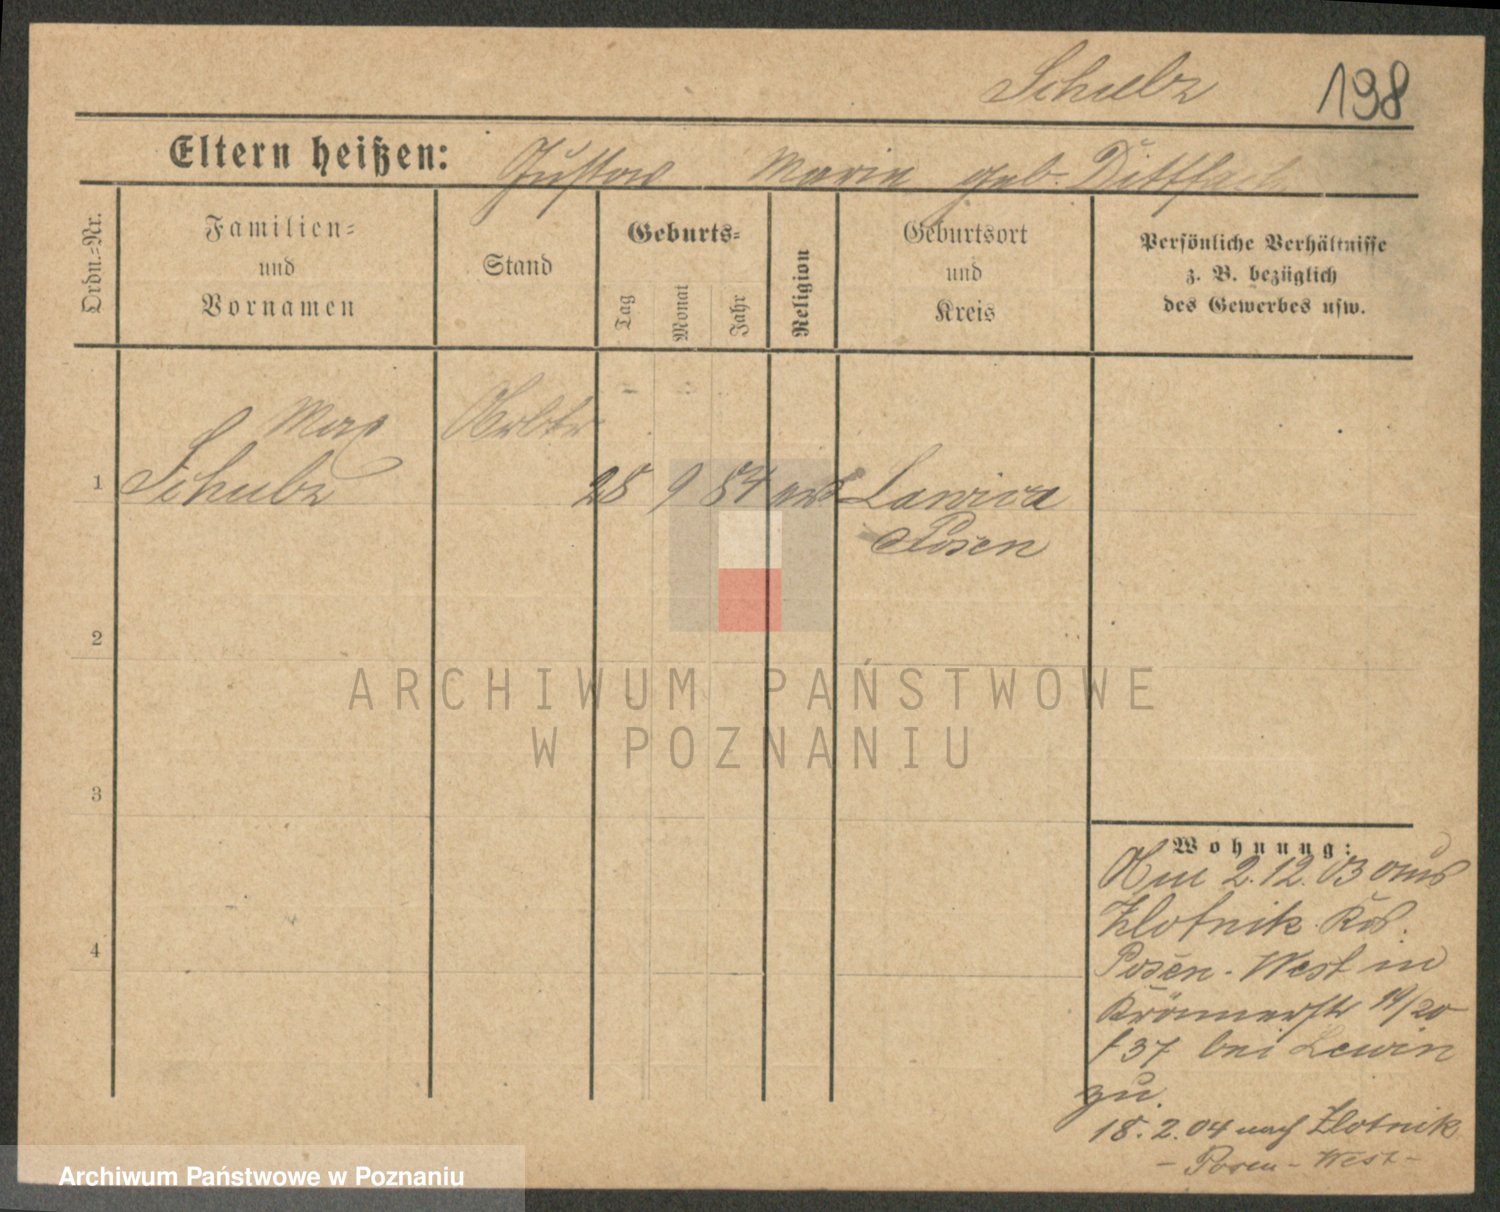 Schulz 198
Eltern heißen: Gustav Marie geb. Dittfach
Ordn.-Nr.
Familien-
und
Vornamen
Stand
Geburts-
Tag
Monat
Jahr
Religion
Geburtsort
und
Kreis
Persönliche Verhältnisse
z. B. bezüglich
des Gewerbes usw.
Max
1 Schulz 28 9 84 Lawica
Posen
2
3
4
Wohnung:
2.12.03 aus
Zlotnik Krs.
Posen-West in
14/20
bei Lewin
zu.
18.2.04 nach Zlotnik
- Posen - West -
ARCHIWUM PAŃSTWOWE
W POZNANIU
Archiwum Państwowe w Poznaniu